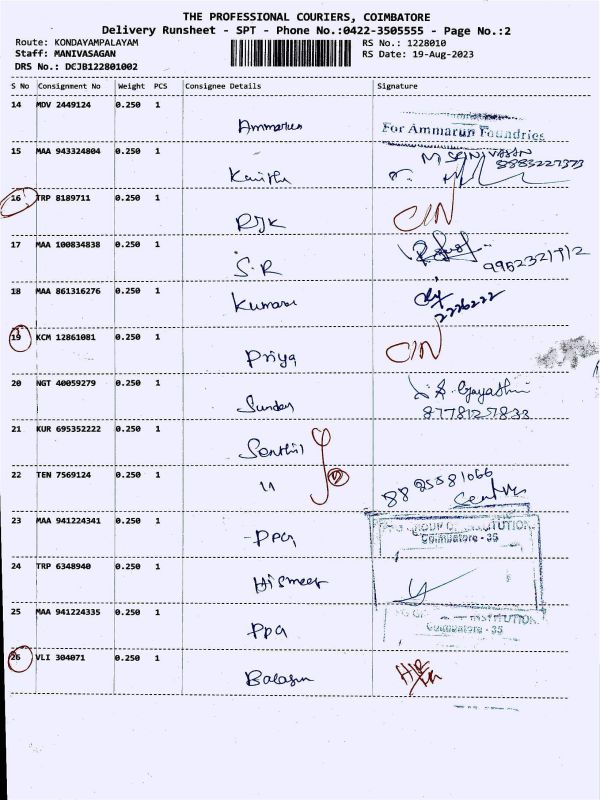 THE PROFESSIONAL COURIERS, COIMBATORE
Delivery Runsheet - SPT - Phone No.:0422-3505555 - Page No.:2
Route: KONDAYAMPALAYAM RS No.: 1228010
Staff: MANIVASAGAN RS Date: 19-Aug-2023
DRS No.: DCJB122801002
S No Consignment No Weight PCS Consignee Details Signature
14 MDV 2449124 0.250 1
Ammarun For Ammarun Foundries
15 MAA 943324804 0.250 1
Kavitha 8883227373
16 TRP 8189711 0.250 1
RJK CIN
17 MAA 100834838 0.250 1
S.R 9962321912
18 MAA 861316276 0.250 1
Kumaran 2226222
19 KCM 12861081 0.250 1
Priya CIN
20 NGT 40059279 0.250 1
Sunday 8778127833
21 KUR 695352222 0.250 1
Senthil
22 TEN 7569124 0.250 1
8825581066
23 MAA 941224341 0.250 1
GROUP OF INSTITUTION
Coimbatore - 35
24 TRP 6348940 0.250 1
25 MAA 941224335 0.250 1
INSTITUTION
Coimbatore - 35
26 VLI 304071 0.250 1